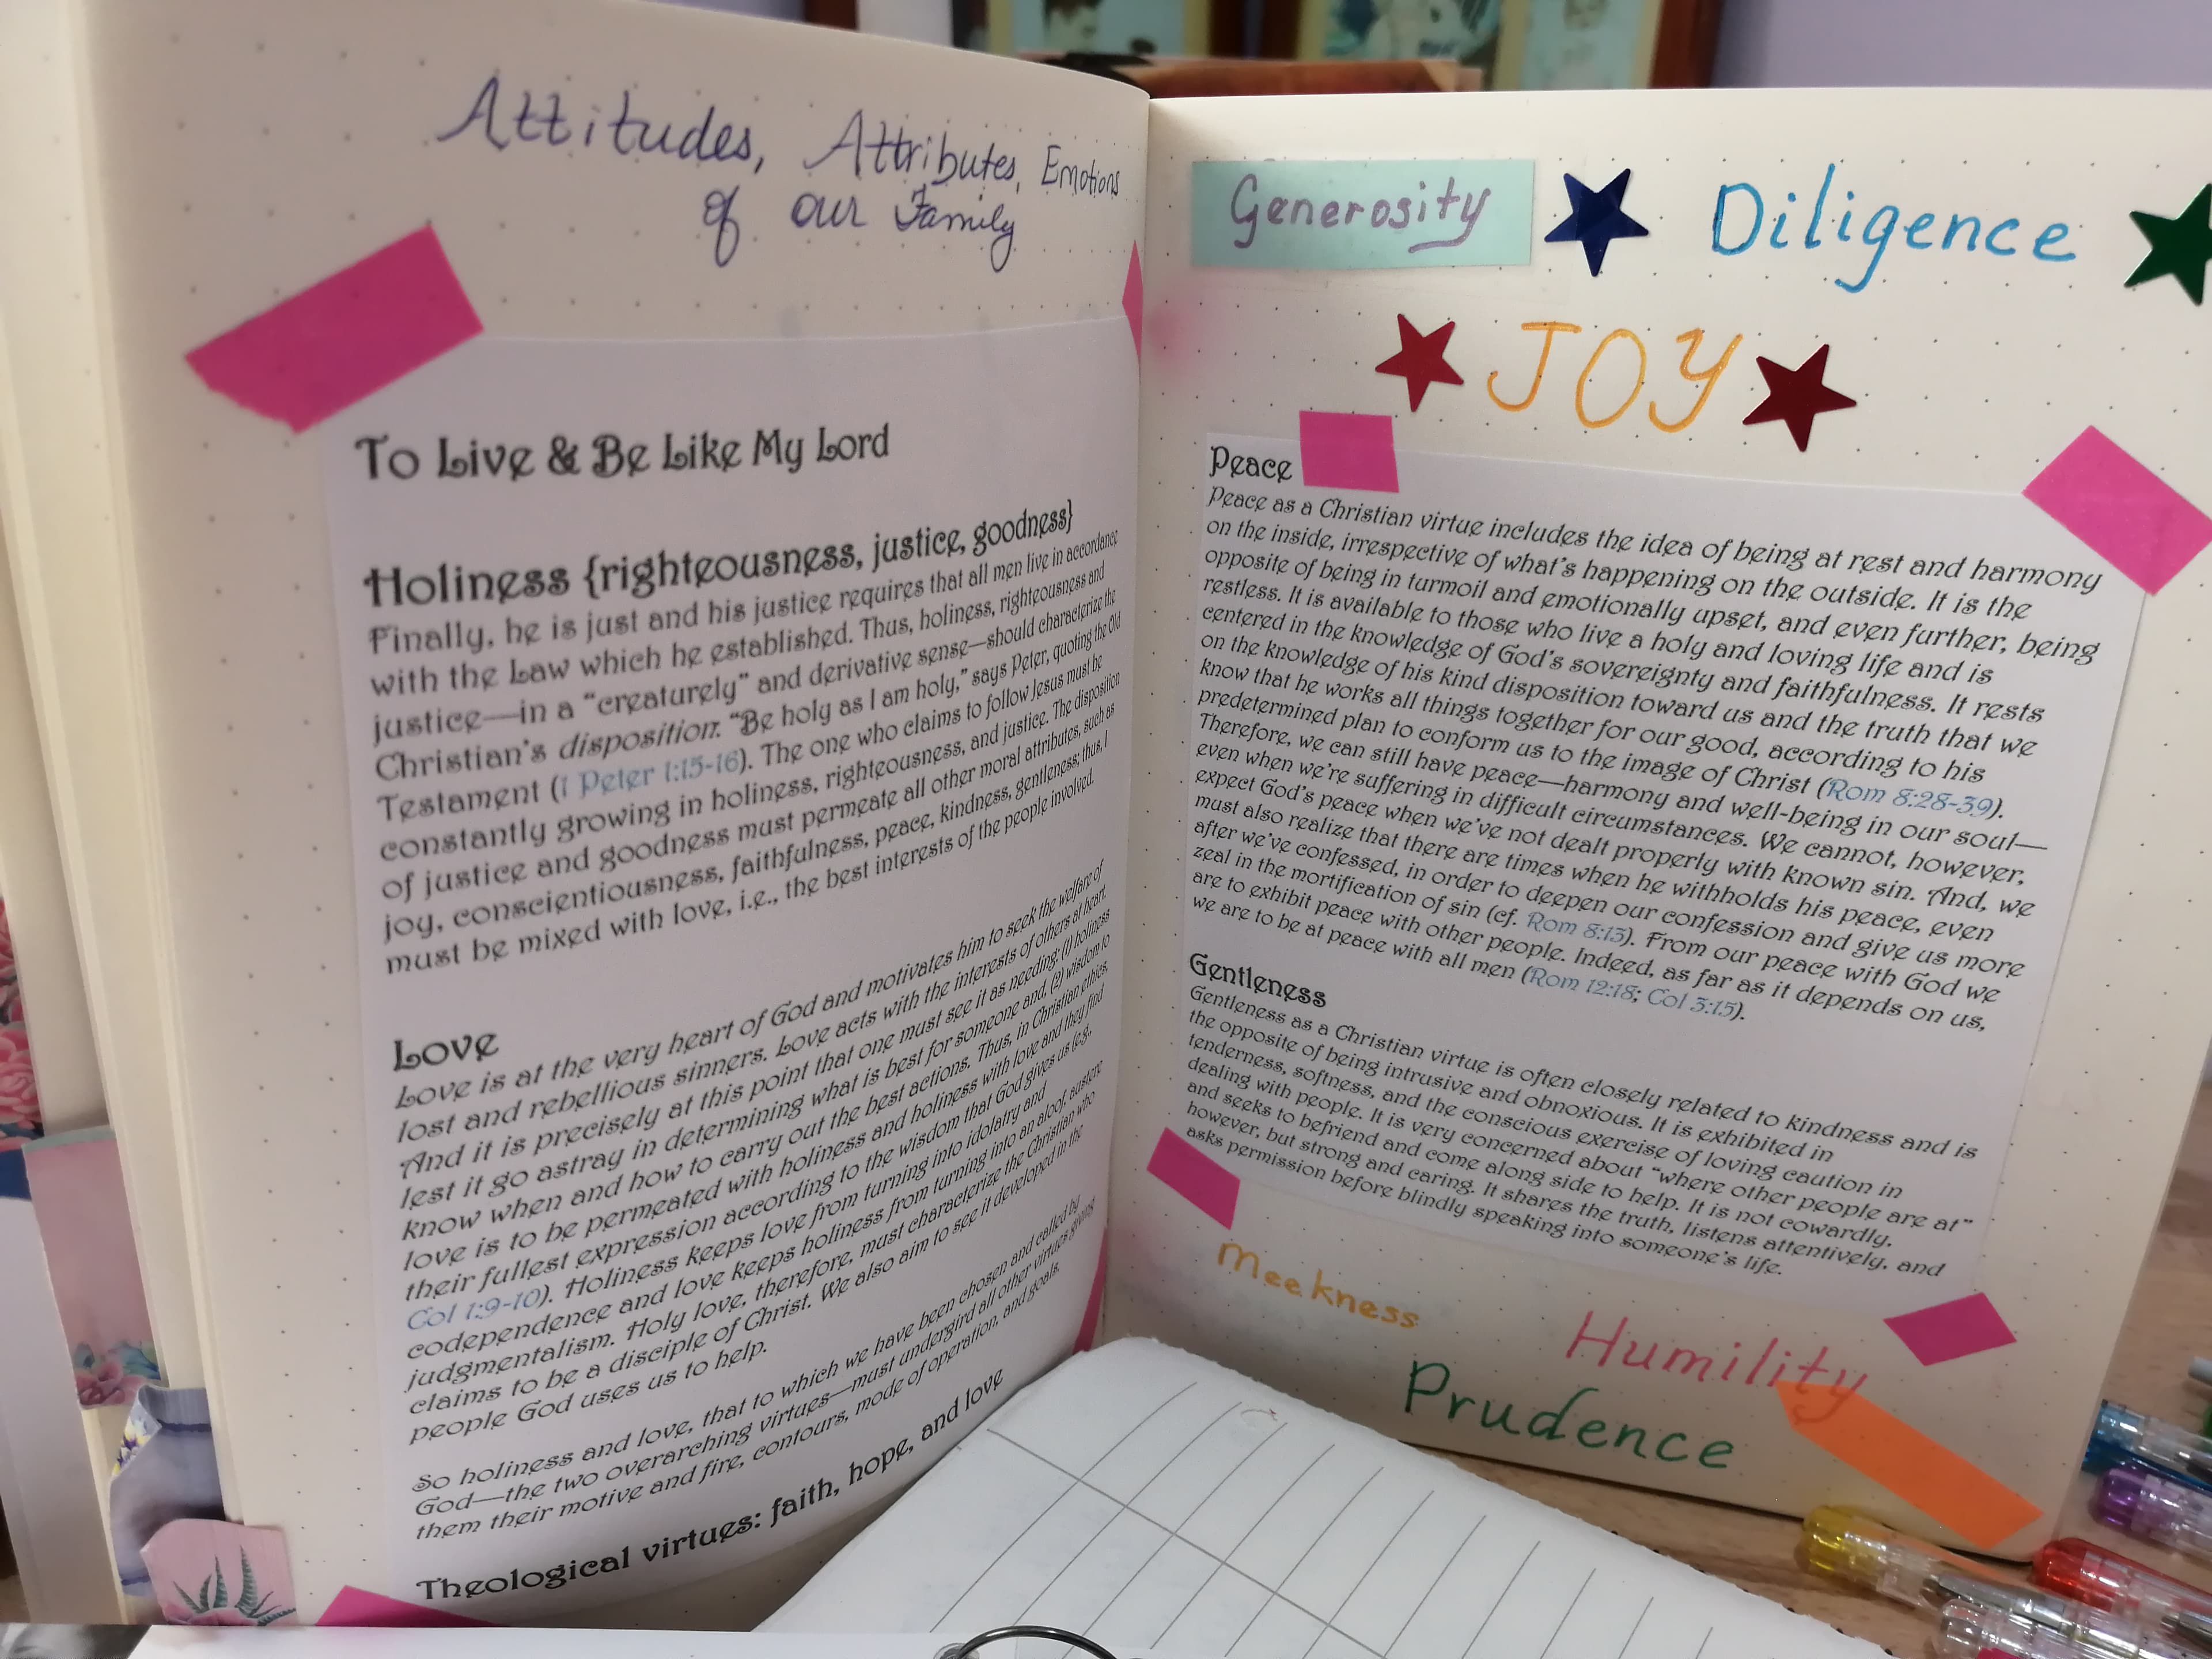 Attitudes, Attributes, Emotions
of our Family
To Live & Be Like My Lord
Holiness {righteousness, justice, goodness}
Finally, he is just and his justice requires that all men live in accordance
with the Law which he established. Thus, holiness, righteousness and
justice—in a “creaturely” and derivative sense—should characterize the
Christian’s disposition: “Be holy as I am holy,” says Peter, quoting the Old
Testament (1 Peter 1:15-16). The one who claims to follow Jesus must be
constantly growing in holiness, righteousness, and justice. The disposition
of justice and goodness must permeate all other moral attributes, such as
joy, conscientiousness, faithfulness, peace, kindness, gentleness; thus, I
must be mixed with love, i.e., the best interests of the people involved.
Love
Love is at the very heart of God and motivates him to seek the welfare of
lost and rebellious sinners. Love acts with the interests of others at heart.
And it is precisely at this point that one must see it as needing: (1) holiness
lest it go astray in determining what is best for someone and, (2) wisdom to
know when and how to carry out the best actions. Thus, in Christian ethics,
love is to be permeated with holiness and holiness with love and they find
their fullest expression according to the wisdom that God gives us (e.g.,
Col 1:9-10). Holiness keeps love from turning into idolatry and
codependence and love keeps holiness from turning into an aloof, austere
judgmentalism. Holy love, therefore, must characterize the Christian who
claims to be a disciple of Christ. We also aim to see it developed in the
people God uses us to help.
So holiness and love, that to which we have been chosen and called by
God—the two overarching virtues—must undergird all other virtues giving
them their motive and fire, contours, mode of operation, and goals.
Theological virtues: faith, hope, and love
Generosity Diligence
JOY
Peace
Peace as a Christian virtue includes the idea of being at rest and harmony
on the inside, irrespective of what’s happening on the outside. It is the
opposite of being in turmoil and emotionally upset, and even further, being
restless. It is available to those who live a holy and loving life and is
centered in the knowledge of God’s sovereignty and faithfulness. It rests
on the knowledge of his kind disposition toward us and the truth that we
know that he works all things together for our good, according to his
predetermined plan to conform us to the image of Christ (Rom 8:28-39).
Therefore, we can still have peace—harmony and well-being in our soul—
even when we’re suffering in difficult circumstances. We cannot, however,
expect God’s peace when we’ve not dealt properly with known sin. And, we
must also realize that there are times when he withholds his peace, even
after we’ve confessed, in order to deepen our confession and give us more
zeal in the mortification of sin (cf. Rom 8:13). From our peace with God we
are to exhibit peace with other people. Indeed, as far as it depends on us,
we are to be at peace with all men (Rom 12:18; Col 3:15).
Gentleness
Gentleness as a Christian virtue is often closely related to kindness and is
the opposite of being intrusive and obnoxious. It is exhibited in
tenderness, softness, and the conscious exercise of loving caution in
dealing with people. It is very concerned about “where other people are at”
and seeks to befriend and come along side to help. It is not cowardly,
however, but strong and caring. It shares the truth, listens attentively, and
asks permission before blindly speaking into someone’s life.
Meekness
Humility
Prudence